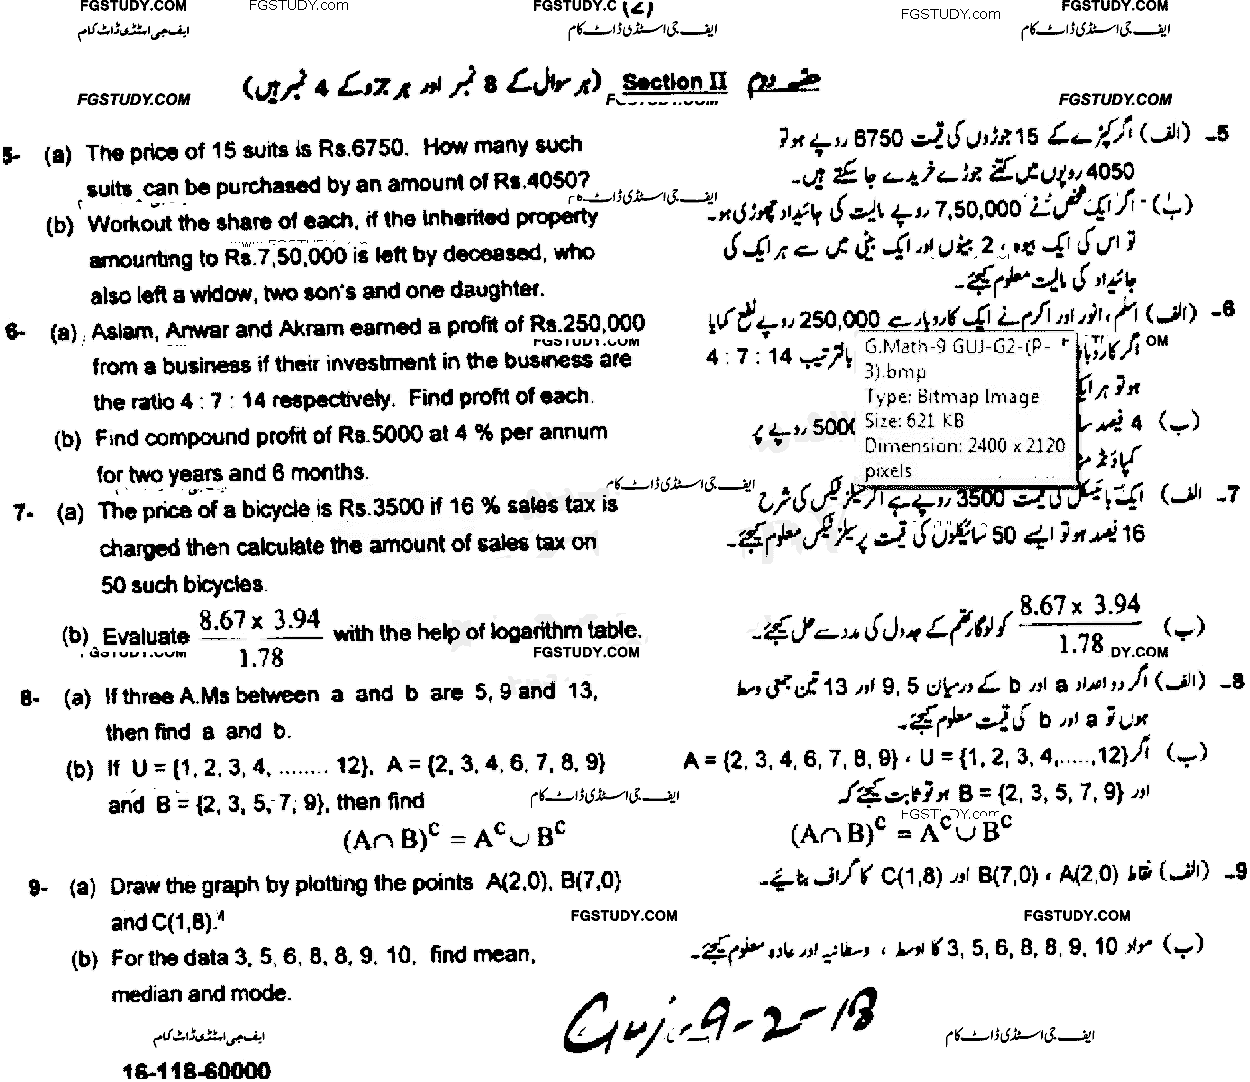 FGSTUDY.COM FGSTUDY.com FGSTUDY.C (2) FGSTUDY.com FGSTUDY.COM
ایف جی اسٹڈی ڈاٹ کام ایف جی اسٹڈی ڈاٹ کام ایف جی اسٹڈی ڈاٹ کام
حصہ دوم Section II (ہر سوال کے 8 نمبر اور ہر جزو کے 4 نمبر ہیں)
FGSTUDY.COM FGSTUDY.COM
5- (a) The price of 15 suits is Rs.6750. How many such
suits can be purchased by an amount of Rs.4050?
ایف جی اسٹڈی ڈاٹ کام
(b) Workout the share of each, if the inherited property
amounting to Rs.7,50,000 is left by deceased, who
also left a widow, two son's and one daughter.
6- (a) Aslam, Anwar and Akram earned a profit of Rs.250,000
FGSTUDY.COM
from a business if their investment in the business are
the ratio 4 : 7 : 14 respectively. Find profit of each.
(b) Find compound profit of Rs.5000 at 4 % per annum
for two years and 6 months.
ایف جی اسٹڈی ڈاٹ کام
7- (a) The price of a bicycle is Rs.3500 if 16 % sales tax is
charged then calculate the amount of sales tax on
50 such bicycles.
(b) Evaluate 8.67 x 3.94 / 1.78 with the help of logarithm table.
FGSTUDY.COM FGSTUDY.COM
8- (a) If three A.Ms between a and b are 5, 9 and 13,
then find a and b.
(b) If U = {1, 2, 3, 4, ........ 12}, A = {2, 3, 4, 6, 7, 8, 9}
and B = {2, 3, 5, 7, 9}, then find
ایف جی اسٹڈی ڈاٹ کام
(A∩B)ᶜ = Aᶜ∪Bᶜ
9- (a) Draw the graph by plotting the points A(2,0), B(7,0)
and C(1,8).
FGSTUDY.COM
(b) For the data 3, 5, 6, 8, 8, 9, 10, find mean,
median and mode.
5- (الف) اگر کپڑے کے 15 جوڑوں کی قیمت 6750 روپے ہو تو
4050 روپوں میں کتنے جوڑے خریدے جا سکتے ہیں۔
(ب) اگر ایک شخص نے 7,50,000 روپے مالیت کی جائیداد چھوڑی ہو۔
تو اس کی ایک بیوہ، 2 بیٹوں اور ایک بیٹی میں سے ہر ایک کی
جائیداد کی مالیت معلوم کیجئے۔
6- (الف) اسلم، انور اور اکرم نے ایک کاروبار سے 250,000 روپے نفع کمایا
اگر بالترتیب 4 : 7 : 14
OM
ہو تو ہر
(ب) 4 فیصد روپے پر
G.Math-9 GUJ-G2-(P-
3).bmp
Type: Bitmap Image
Size: 621 KB
Dimension: 2400 x 2120
pixels
7- الف) ایک بائیسکل کی قیمت 3500 روپے ہے اگر سیلز ٹیکس کی شرح
16 فیصد ہو تو ایسے 50 سائیکلوں کی قیمت پر سیلز ٹیکس معلوم کیجئے۔
(ب) 8.67 x 3.94 / 1.78 کو لوگارتھم کے جدول کی مدد سے حل کیجئے۔
DY.COM
8- (الف) اگر دو اعداد a اور b کے درمیان 5, 9 اور 13 تین جمعی وسط
ہوں تو a اور b کی قیمت معلوم کیجئے۔
(ب) اگر U = {1, 2, 3, 4,.....,12} ، A = {2, 3, 4, 6, 7, 8, 9}
اور B = {2, 3, 5, 7, 9} ہو تو ثابت کیجئے کہ
FGSTUDY.com
(A∩B)ᶜ = Aᶜ∪Bᶜ
9- (الف) نقاط A(2,0) ، B(7,0) اور C(1,8) کا گراف بنائیے۔
FGSTUDY.COM
(ب) مواد 3, 5, 6, 8, 8, 9, 10 کا اوسط ، وسطانیہ اور عادہ معلوم کیجئے۔
Guj-9-2-18
ایف جی اسٹڈی ڈاٹ کام ایف جی اسٹڈی ڈاٹ کام
16-118-60000